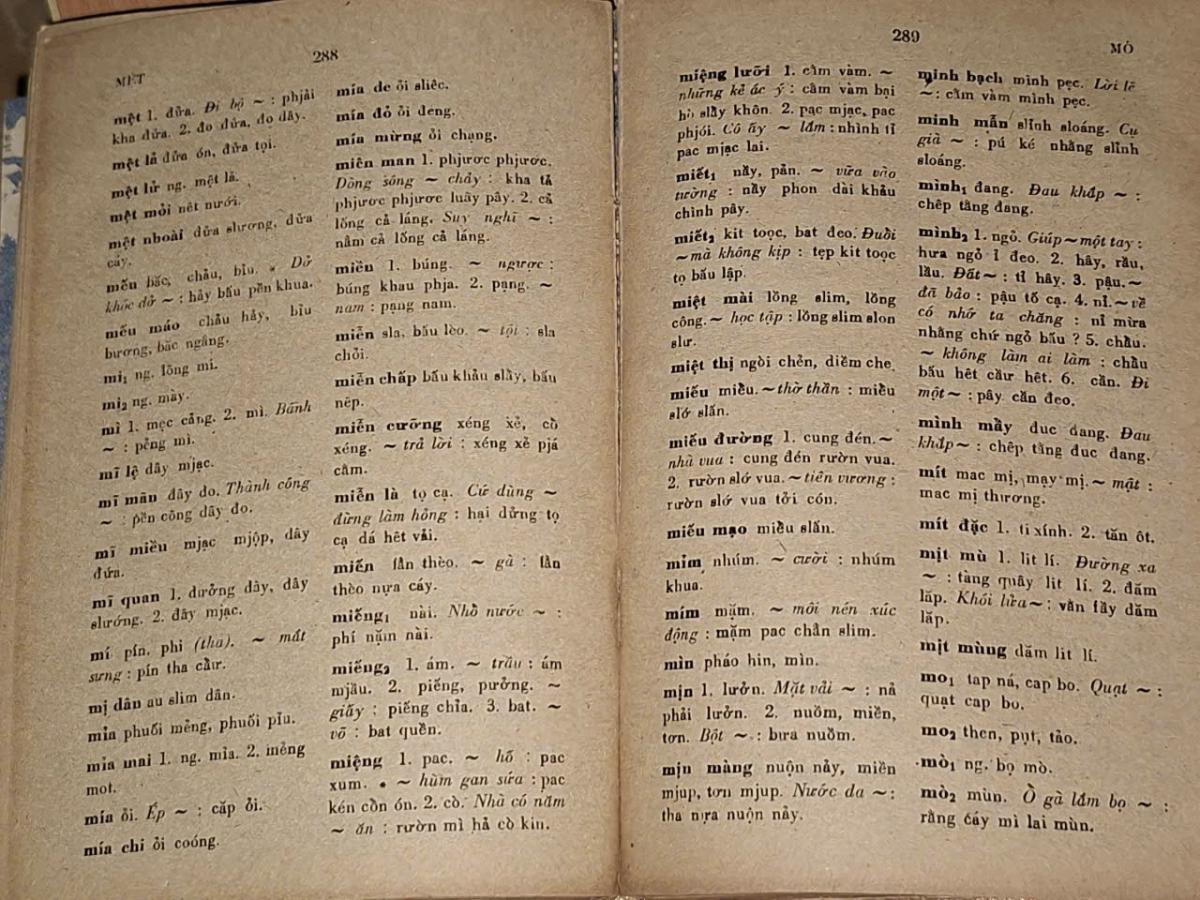 288
MỆT
mệt 1. đứa. Đi bộ ~ : phjải
kha đứa. 2. đo đứa, đo dây.
mệt lả đứa ón, đứa tọi.
mệt lử ng. mệt lả.
mệt mỏi nêt nưới.
mệt nhoài đứa slương, đứa
cáy.
mếu bặc, chảu, bỉu. Dở
khóc dở ~ : hảy bấu pền khua.
mếu máo chảu hảy, bỉu
bương, bặc ngẳng.
mi₁ ng. lông mi.
mi₂ ng. mày.
mì 1. mẹc cảng. 2. mì. Bánh
~ : pẻng mì.
mĩ lệ dây mjạc.
mĩ mãn dây do. Thành công
~ : pền công dây do.
mĩ miều mjạc mjộp, dây
đứa.
mĩ quan 1. dưởng dày, dây
slướng. 2. dây mjạc.
mí pín. phi (tha). ~ mắt
sưng : pín tha cầư.
mị dân au slim dân.
mỉa phuối mẻng, phuối pỉu.
mỉa mai 1. ng. mỉa. 2. mẻng
mot.
mía ỏi. Ép ~ : cặp ỏi.
mía chi ỏi coóng.
mía de ỏi sliêc.
mía đỏ ỏi đeng.
mía mừng ỏi chạng.
miên man 1. phjược phjược.
Dòng sông ~ chảy : kha tả
phjược phjược luây pây. 2. cả
lống cả láng. Suy nghĩ ~ :
nẳm cả lống cả láng.
miền 1. búng. ~ ngược :
búng khau phja. 2. pạng. ~
nam : pạng nam.
miễn sla, bấu lèo. ~ tội : sla
chỏi.
miễn chấp bấu khảu slẩy, bấu
nêp.
miễn cưỡng xéng xẻ, cò
xéng. ~ trả lời : xéng xẻ pjá
cằm.
miễn là tọ cạ. Cứ dùng ~
đừng làm hỏng : hại dửng tọ
cạ dá hêt vải.
miến fằn thèo. ~ gà : fằn
thèo nựa cáy.
miếng₁ nài. Nhổ nước ~ :
phí nặm nài.
miếng₂ 1. ám. ~ trầu : ám
mjầu. 2. piếng, pưởng. ~
giấy : piếng chỉa. 3. bat. ~
võ : bat quền.
miệng 1. pac. ~ hố : pac
xum. ~ hùm gan sứa : pac
kén cồn ón. 2. cò. Nhà có năm
~ ăn : rườn mì hả cò kin.
289
MÒ
miệng lưỡi 1. cằm vàm. ~
những kẻ ác ý : cằm vàm bại
slẩy khôn. 2. pac mjạc, pac
phjói. Cô ấy ~ lắm : nhình tỉ
pac mjạc lai.
miết₁ nẩy, pản. ~ vữa vào
tường : nẩy phon dài khảu
chình pây.
miết₂ kit toọc, bat đeo. Đuổi
~ mà không kịp : tẹp kit toọc
tọ bấu lập.
miệt mài lồng slim, lồng
công. ~ học tập : lồng slim slon
slư.
miệt thị ngòi chẻn, diềm che
miếu miều. ~ thờ thần : miều
slớ slấn.
miếu đường 1. cung đén. ~
nhà vua : cung đén rườn vua.
2. rườn slớ vua. ~ tiên vương :
rườn slớ vua tởi cón.
miếu mạo miều slấn.
mỉm nhúm. ~ cười : nhúm
khua.
mím mặm. ~ môi nén xúc
động : mặm pac chẳn slim.
mìn pháo hin, mìn.
mịn 1. lưởn. Mặt vải ~ : nả
phải lưởn. 2. nuồm, miền,
tơn. Bột ~ : bưa nuồm.
mịn màng nuộn nảy, miền
mjup, tơn mjup. Nước da ~ :
tha nựa nuộn nảy.
minh bạch mình pẹc. Lời lẽ
~ : cằm vàm mình pẹc.
minh mẫn slỉnh sloáng. Cụ
già ~ : pú ké nhằng slỉnh
sloáng.
mình₁ đang. Đau khắp ~ :
chêp tằng đang.
mình₂ 1. ngỏ. Giúp ~ một tay :
hưa ngỏ ỉ đeo. 2. hây, rầu,
lầu. Đất ~ : tỉ hây. 3. pậu. ~
đã bảo : pậu tố cạ. 4. nỉ. ~ về
có nhớ ta chăng : nỉ mừa
nhằng chứ ngỏ bấu ? 5. chầu.
~ không làm ai làm : chầu
bấu hêt cầư hêt. 6. cần. Đi
một ~ : pây cần đeo.
mình mẩy đuc đang. Đau
khắp ~ : chêp tằng đuc đang.
mít mac mị, mạy mị. ~ mật :
mac mị thương.
mít đặc 1. ti xính. 2. tăn ôt.
mịt mù 1. lit lí. Đường xa
~ : tàng quây lit lí. 2. đăm
lăp. Khói lửa ~ : vằn fầy đăm
lăp.
mịt mùng đăm lit lí.
mo₁ tap ná, cap bo. Quạt ~ :
quạt cap bo.
mo₂ then, pụt, tảo.
mò₁ ng. bọ mò.
mò₂ mùn. Ổ gà lắm bọ ~ :
rằng cáy mì lai mùn.